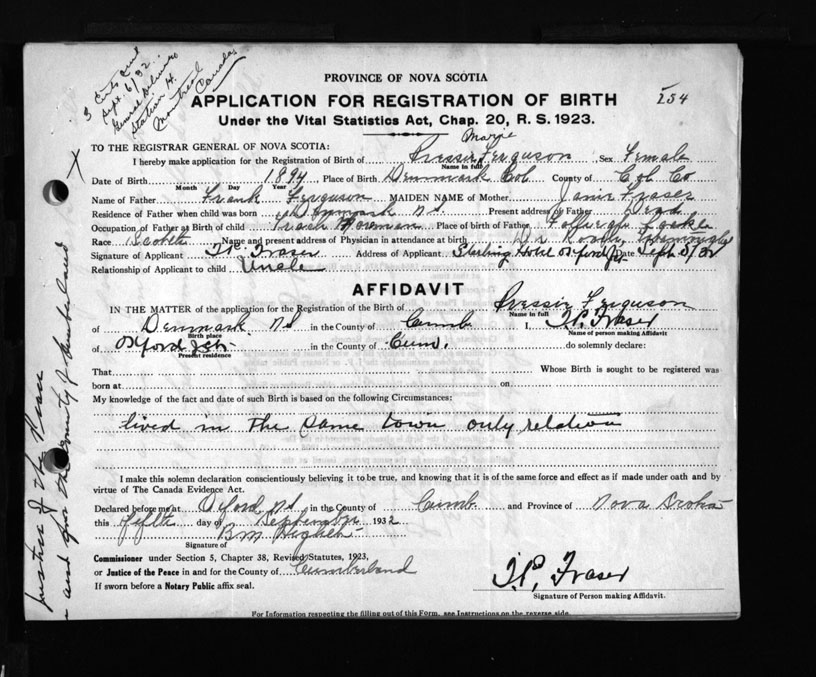 3 Certs sent
Sept. 6/32
General Delivery
Station H.
Montreal
Canada
PROVINCE OF NOVA SCOTIA
APPLICATION FOR REGISTRATION OF BIRTH
254
Under the Vital Statistics Act, Chap. 20, R. S. 1923.
X
Marie
TO THE REGISTRAR GENERAL OF NOVA SCOTIA:
I hereby make application for the Registration of Birth of Ferguson Sex Female
Name in full
Date of Birth 1894 Place of Birth Denmark Col County of Col Co
Month Day Year
Name of Father Frank Ferguson MAIDEN NAME of Mother Fraser
Residence of Father when child was born Denmark N S Present address of Father Dead
Occupation of Father at Birth of child Track Foreman Place of birth of Father
Race Scotch Name and present address of Physician in attendance at birth Dr
Signature of Applicant Fraser Address of Applicant Sterling Hotel Oxford Jct Date Sept 5/32
Relationship of Applicant to child Uncle
AFFIDAVIT
IN THE MATTER of the application for Registration of the Birth of Ferguson
Name in full
of Denmark NS in the County of Cumb I, Fraser
Birth place Name of person making Affidavit
of Oxford Jct in the County of Cum. do solemnly declare:
Present residence
That Whose Birth is sought to be registered was
born at on
My knowledge of the fact and date of such Birth is based on the following Circumstances:
lived in the same town only relation
I make this solemn declaration conscientiously believing it to be true, and knowing that it is of the same force and effect as if made under oath and by
virtue of The Canada Evidence Act.
Declared before me at Oxford, NS in the County of Cumb and Province of Nova Scotia
this fifth day of September 1932
Signature of
Commissioner under Section 5, Chapter 38, Revised Statutes, 1923,
or Justice of the Peace in and for the County of Cumberland
If sworn before a Notary Public affix seal.
Fraser
Signature of Person making Affidavit.
For Information respecting the filling out of this Form, see Instructions on the reverse side.
Justice of the Peace
in and for the County of Cumberland